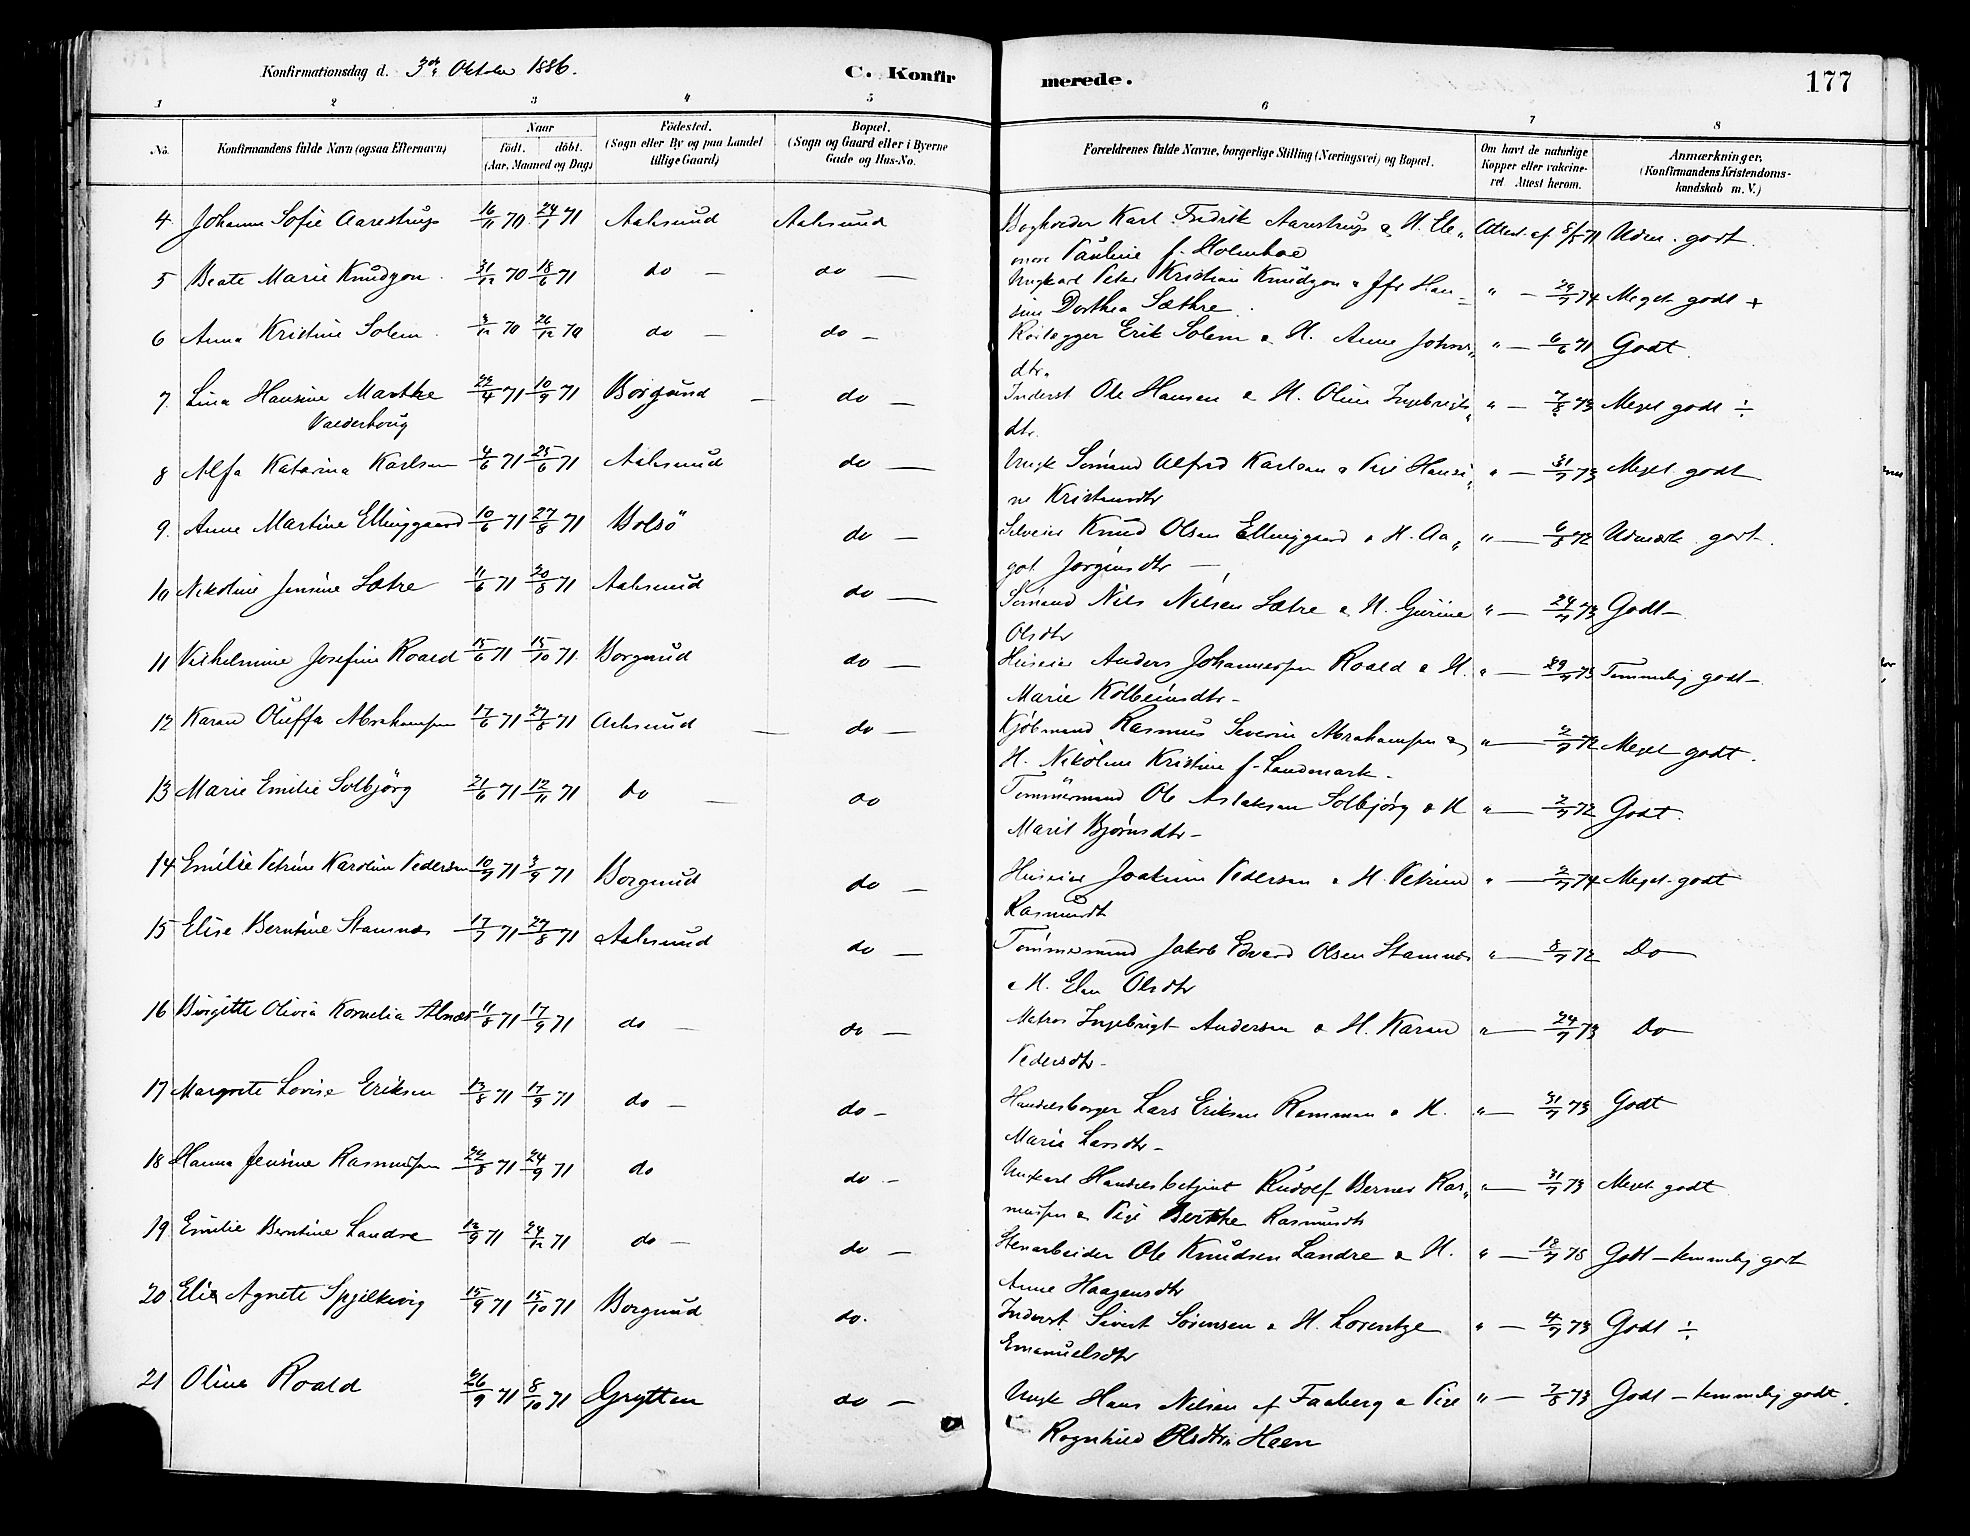 Konfirmationsdag d. 3die Oktober 1886.
C. Konfirmerede.
177
1 2 3 4 5 6 7 8
No. Konfirmandens fulde Navn (ogsaa Efternavn) Naar født. døbt. (Aar, Maaned og Dag) Fødested. (Sogn eller By og paa Landet tillige Gaard) Bopæl. (Sogn og Gaard eller i Byerne Gade og Hus-No. Forældrenes fulde Navne, borgerlige Stilling (Næringsvei) og Bopæl. Om havt de naturlige Kopper eller vakcineret Attest herom. Anmærkninger. (Konfirmandens Kristendomskundskab m. V.)
4. Johanne Sofie Aarestrup 16/11 70 24/1 71 Aalesund Aalesund Bogholder Karl Fredrik Aarestrup & H. Ele„ Attest af 8/8 71 Udm. godt.
nore Pauline f. Holmboe
5 Beate Marie Knudzon. 31/12 70 18/6 71 do — do — Ungkarl Peter Kristian Knudzon & Jfr Han- " — 29/7 74 Meget godt +
sine Dorthea Sæthre.
6 Anna Kristine Solem. 3/12 70 26/12 70 do — do — Erik Solem & H. Anne Johns„ " — 6/6 71 Godt.
dtr.
7. Lina Hansine Marthe 22/4 71 10/9 71 Borgund — do — Inderst Ole Hansen & H. Oline Ingebrigts„ " — 7/8 73 Meget godt ÷
Valderhoug dtr.
8 Alfa Katarina Karlsen 4/6 71 25/6 71 Aalesund do — Ungk Sømand Alfred Karlsen & Pige Hansi„ " — 31/7 73 Meget godt
ne Kristensdtr
9. Anne Martine Ellinggaard 10/6 71 27/8 71 Bolsö do — Selveier Knud Olsen Ellinggaard & H. Aa„ " — 6/8 72 Udmærk. godt.
got Jørgensdtr —
10 Nikoline Jensine Sætre 11/6 71 20/8 71 Aalesund do — Sømand Nils Nilsen Sætre & H. Gurine " — 24/7 73 Godt —
Olsdtr
11 Vilhelmine Josefine Roald 15/6 71 15/10 71. Borgund do — Huseier Anders Johannessen Roald & H. " — 29/7 73 Temmelig godt —
Marie Kolbeinsdtr —
12 Karen Oluffa Abrahamsen 17/6 71 27/8 71 Aalesund — do — Kjøbmand Rasmus Severin Abrahamsen & " — 2/7 72 Meget godt.
H. Nikoline Kristine f. Landmark —
13 Marie Emilie Solbjörg 21/6 71 12/11 71 do — do Tømmermand Ole Aslaksen Solbjörg & H " — 2/7 72 Godt.
Marit Bjørnsdtr —
14 Emilie Petrine Karoline Pedersen 10/7 71 3/9 71 Borgund do — Huseier Joakim Pedersen & H. Petrine " — 2/7 74 Meget godt
Rasmusdt
15 Elise Berntine Stamnæs 17/7 71 27/8 71 Aalesund do — Tømmermand Jakob Edvard Olsen Stamnæs " — 8/7 72 Do —
& H. Elen Olsdtr
16 Birgitte Olivia Kornelia Alnæs 11/8 71 17/9 71 do — do — Matros Ingebrigt Andersen & H. Karen " — 24/7 73 Do —
Pedersdtr —
17 Margrete Lovise Eriksen 13/8 71 17/9 71 do — do — Handelsborger Lars Eriksen Remmem & H. " — 31/7 73 Godt
Marie Larsdtr —
18 Hanna Jensine Rasmussen 22/8 71 24/9 71 do do — Ungkarl Handelsbetjent Rudolf Berner Ras„ " — 31/7 73 Meget godt
mussen & Pige Berthe Rasmusdtr
19 Emilie Berntine Landre 13/9 71 24/12 71 do — do — Stenarbeider Ole Knudsen Landre & H. " — 18/7 75 Godt — temmelig godt
Anne Haagensdtr
20. Elise Agnete Spjelkavig 15/9 71 15/10 71 Borgund do. Inderst. Sivert Sørensen & H. Lorentze " — 4/7 73 Godt ÷
Emanuelsdtr
21 Oline Roald 26/9 71 8/10 71 Grytten do — Ungk Hans Nilsen af Faaberg & Pige " — 7/8 73 Godt — temmelig godt.
Ragnhild Olsdtr. Heen